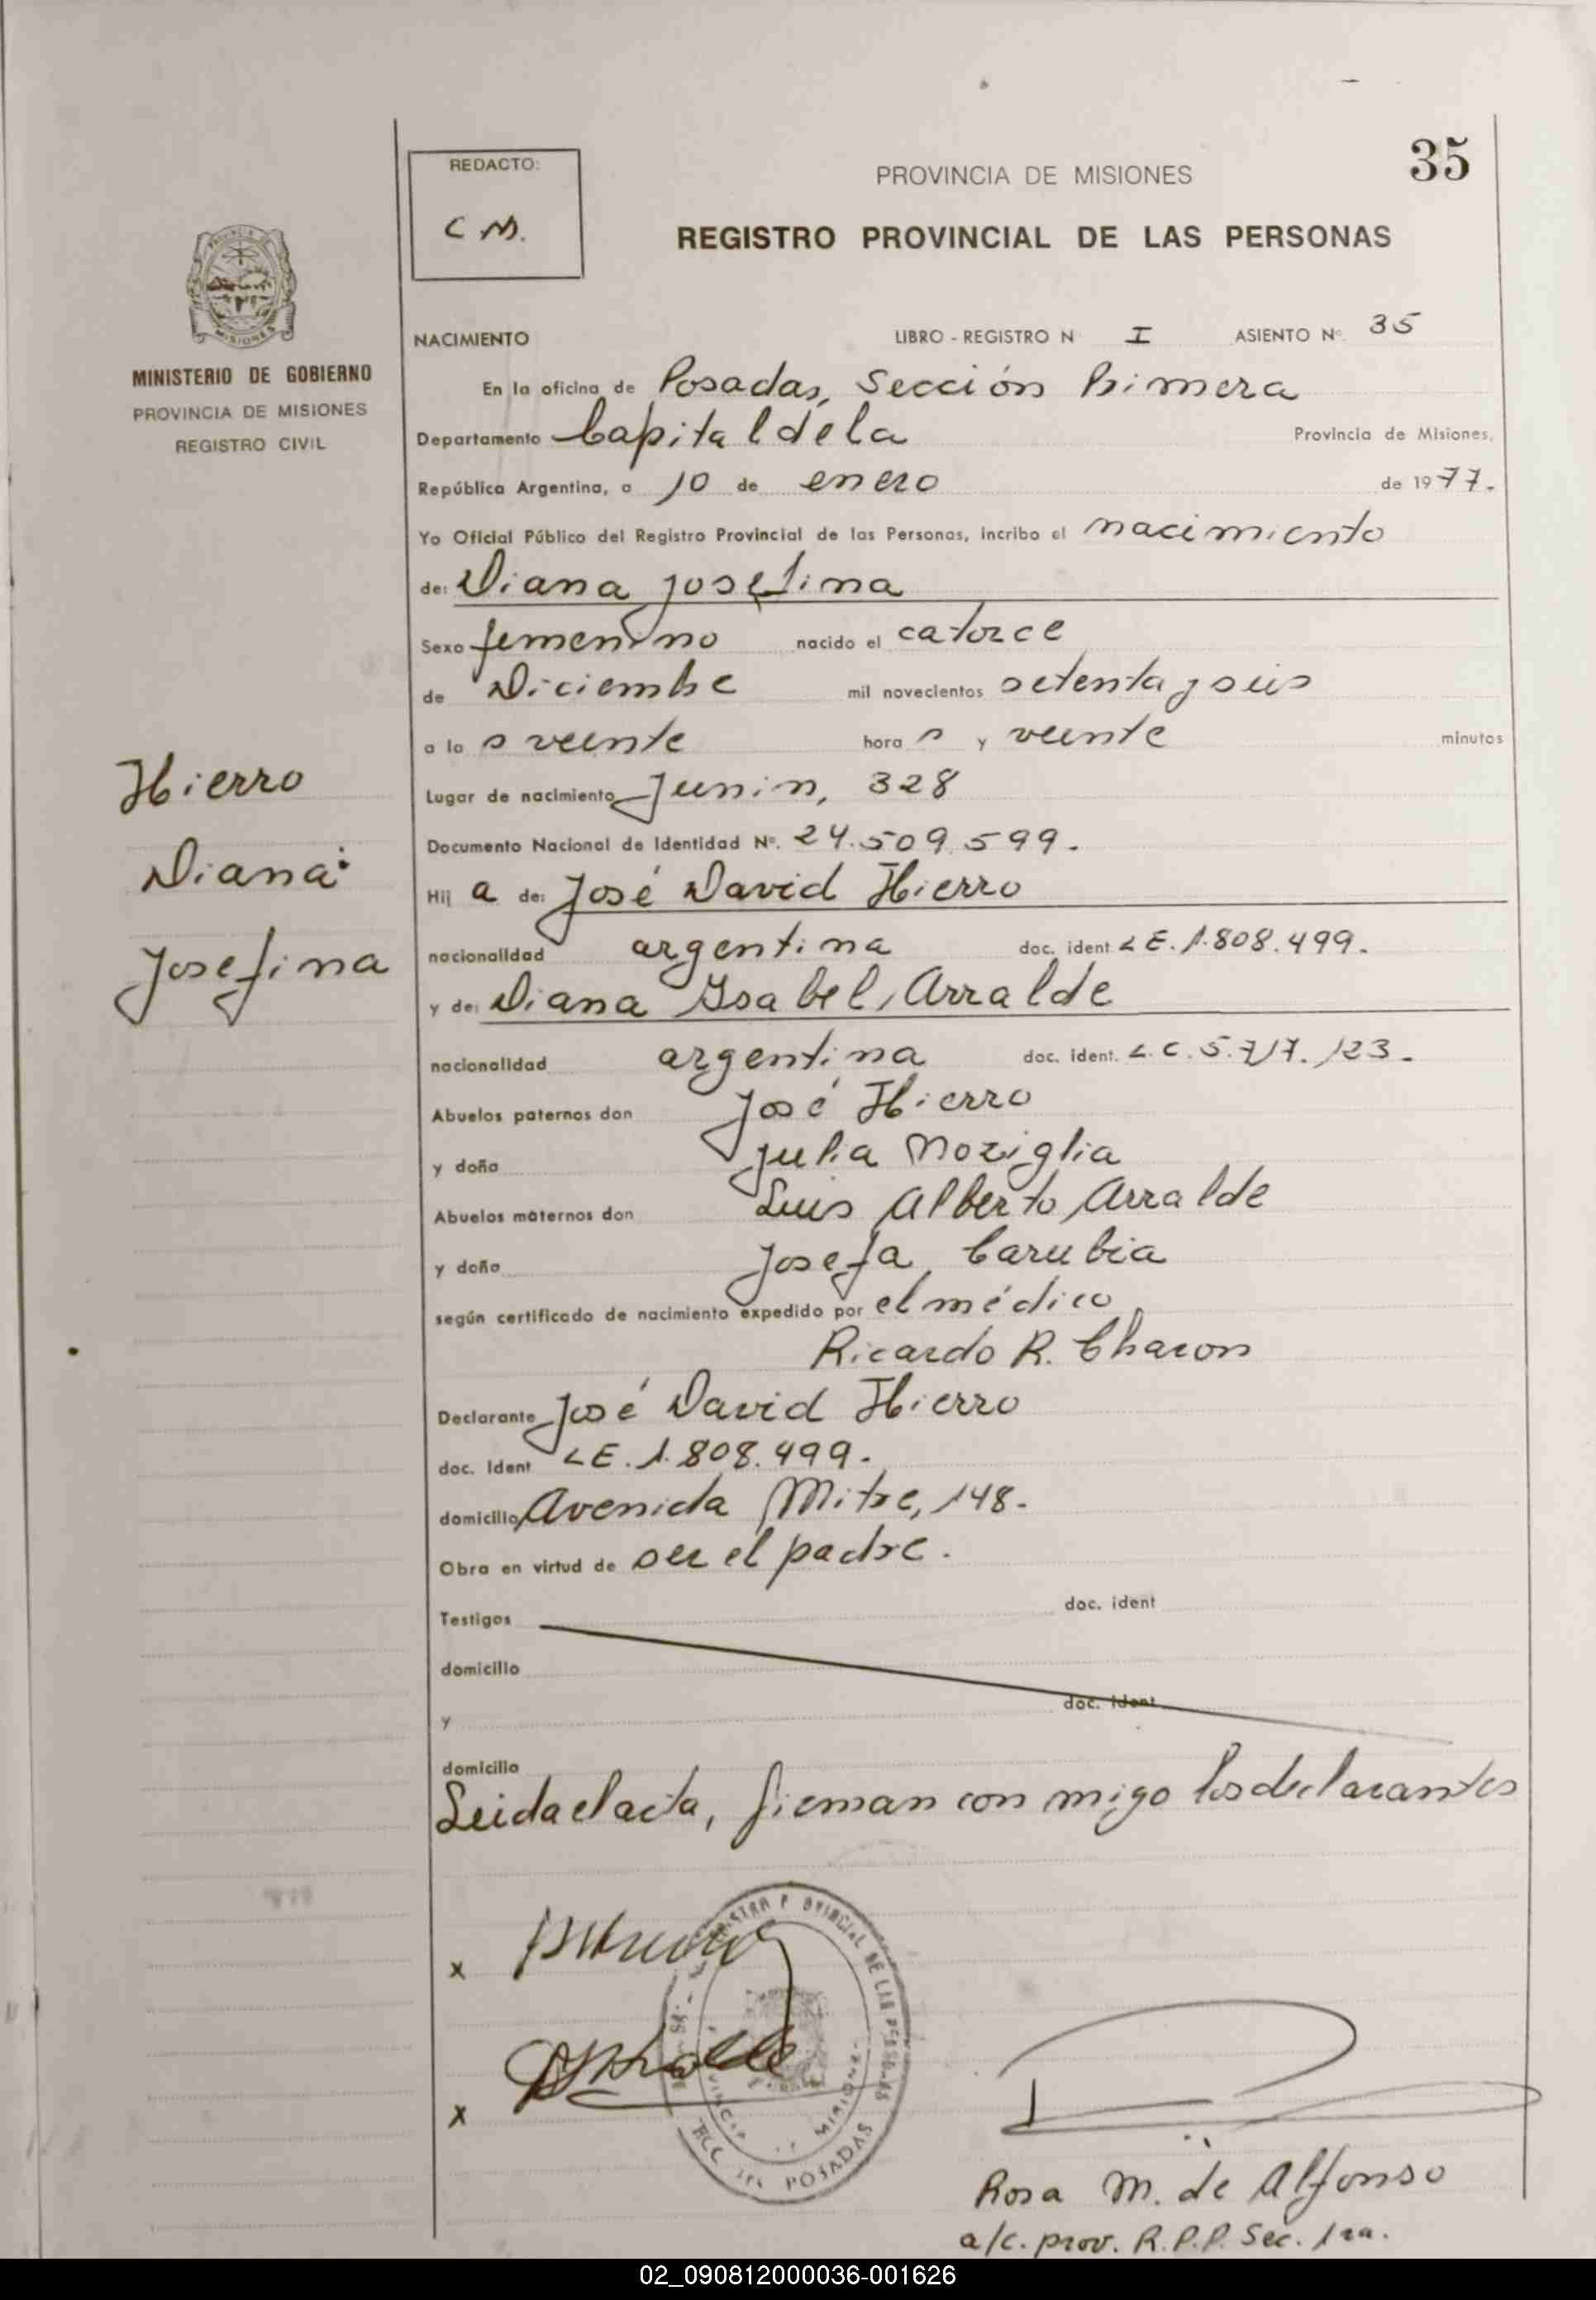 35
REDACTO:
C M.
PROVINCIA DE MISIONES
REGISTRO PROVINCIAL DE LAS PERSONAS
MISIONES
MINISTERIO DE GOBIERNO
PROVINCIA DE MISIONES
REGISTRO CIVIL
NACIMIENTO LIBRO - REGISTRO N I ASIENTO Nº. 35
En la oficina de Posadas, Sección Primera
Departamento Capital de la Provincia de Misiones,
República Argentina, a 10 de enero de 1977.
Yo Oficial Público del Registro Provincial de las Personas, incribo el nacimiento
de: Diana Josefina
Sexo femenino nacido el catorce
de Diciembre mil novecientos setenta y seis
a la s veinte hora s y veinte minutos
Lugar de nacimiento Junin, 328
Documento Nacional de Identidad Nº. 24.509.599.
Hij a de: José David Hierro
nacionalidad argentina doc. ident LE. 1.808.499.
y de: Diana Ysabel Arralde
nacionalidad argentina doc. ident. L.C. 5.717.123.
Abuelos paternos don José Hierro
y doña Julia Moziglia
Abuelos maternos don Luis Alberto Arralde
y doña Josefa Carubia
según certificado de nacimiento expedido por el médico
Ricardo R. Charon
Declarante José David Hierro
doc. Ident LE. 1.808.499.
domicilio Avenida Mitre, 148.
Obra en virtud de ser el padre.
Testigos doc. ident
domicilio
y doc. ident
domicilio
Leida el acta, firman con migo los declarantes
Hierro
Diana
Josefina
x
x
POSADAS
Rosa M. de Alfonso
a/c. prov. R.P.P. Sec. 1ra.
02_090812000036-001626